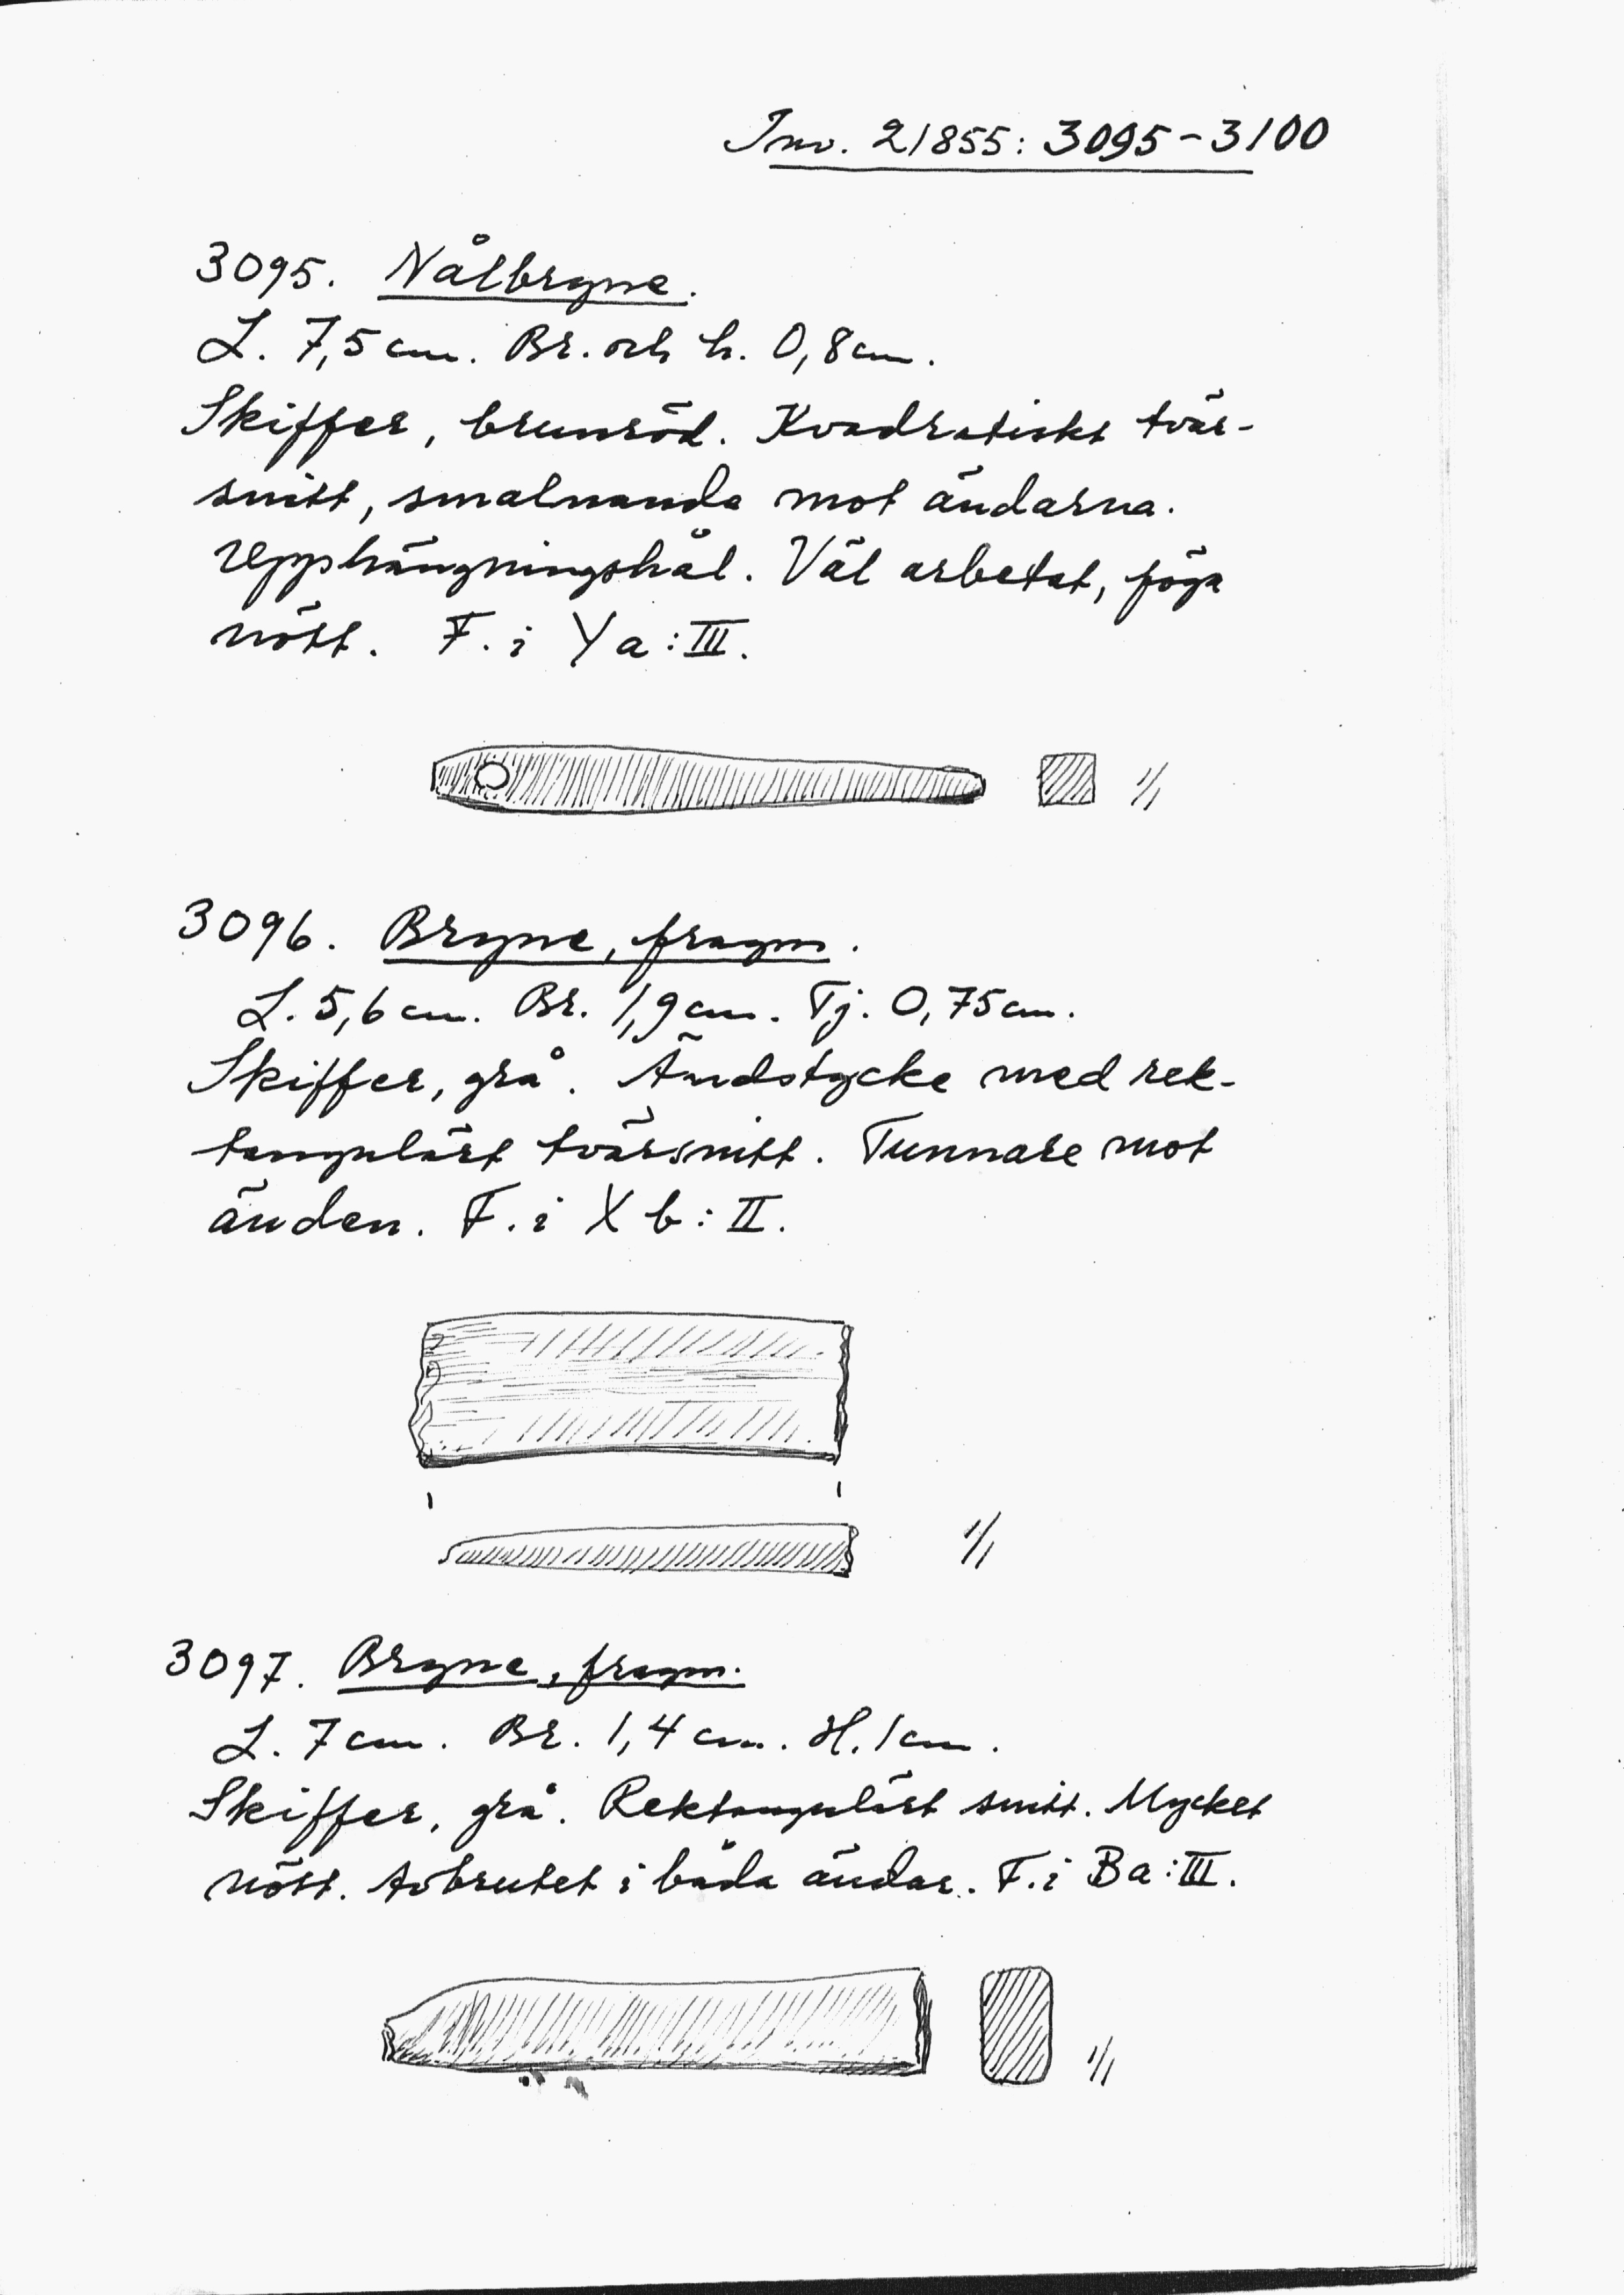 Inv. 21855: 3095-3100
3095. Nålbryne.
L. 7,5 cm. Br. och h. 0,8 cm.
Skiffer, brunröd. Kvadratiskt tvär-
snitt, smalnande mot ändarna.
Upphängningshål. Väl arbetat, föga
nött. F. i Ya:III.
1/1
3096. Bryne, fragm.
L. 5,6 cm. Br. 1,9 cm. Tj. 0,75 cm.
Skiffer, grå. Ändstycke med rek-
tangulärt tvärsnitt. Tunnare mot
änden. F. i Xb:II.
1/1
3097. Bryne, fragm.
L. 7 cm. Br. 1,4 cm. H. 1 cm.
Skiffer, grå. Rektangulärt snitt. Mycket
nött. Avbrutet i båda ändar. F. i Ba:III.
1/1